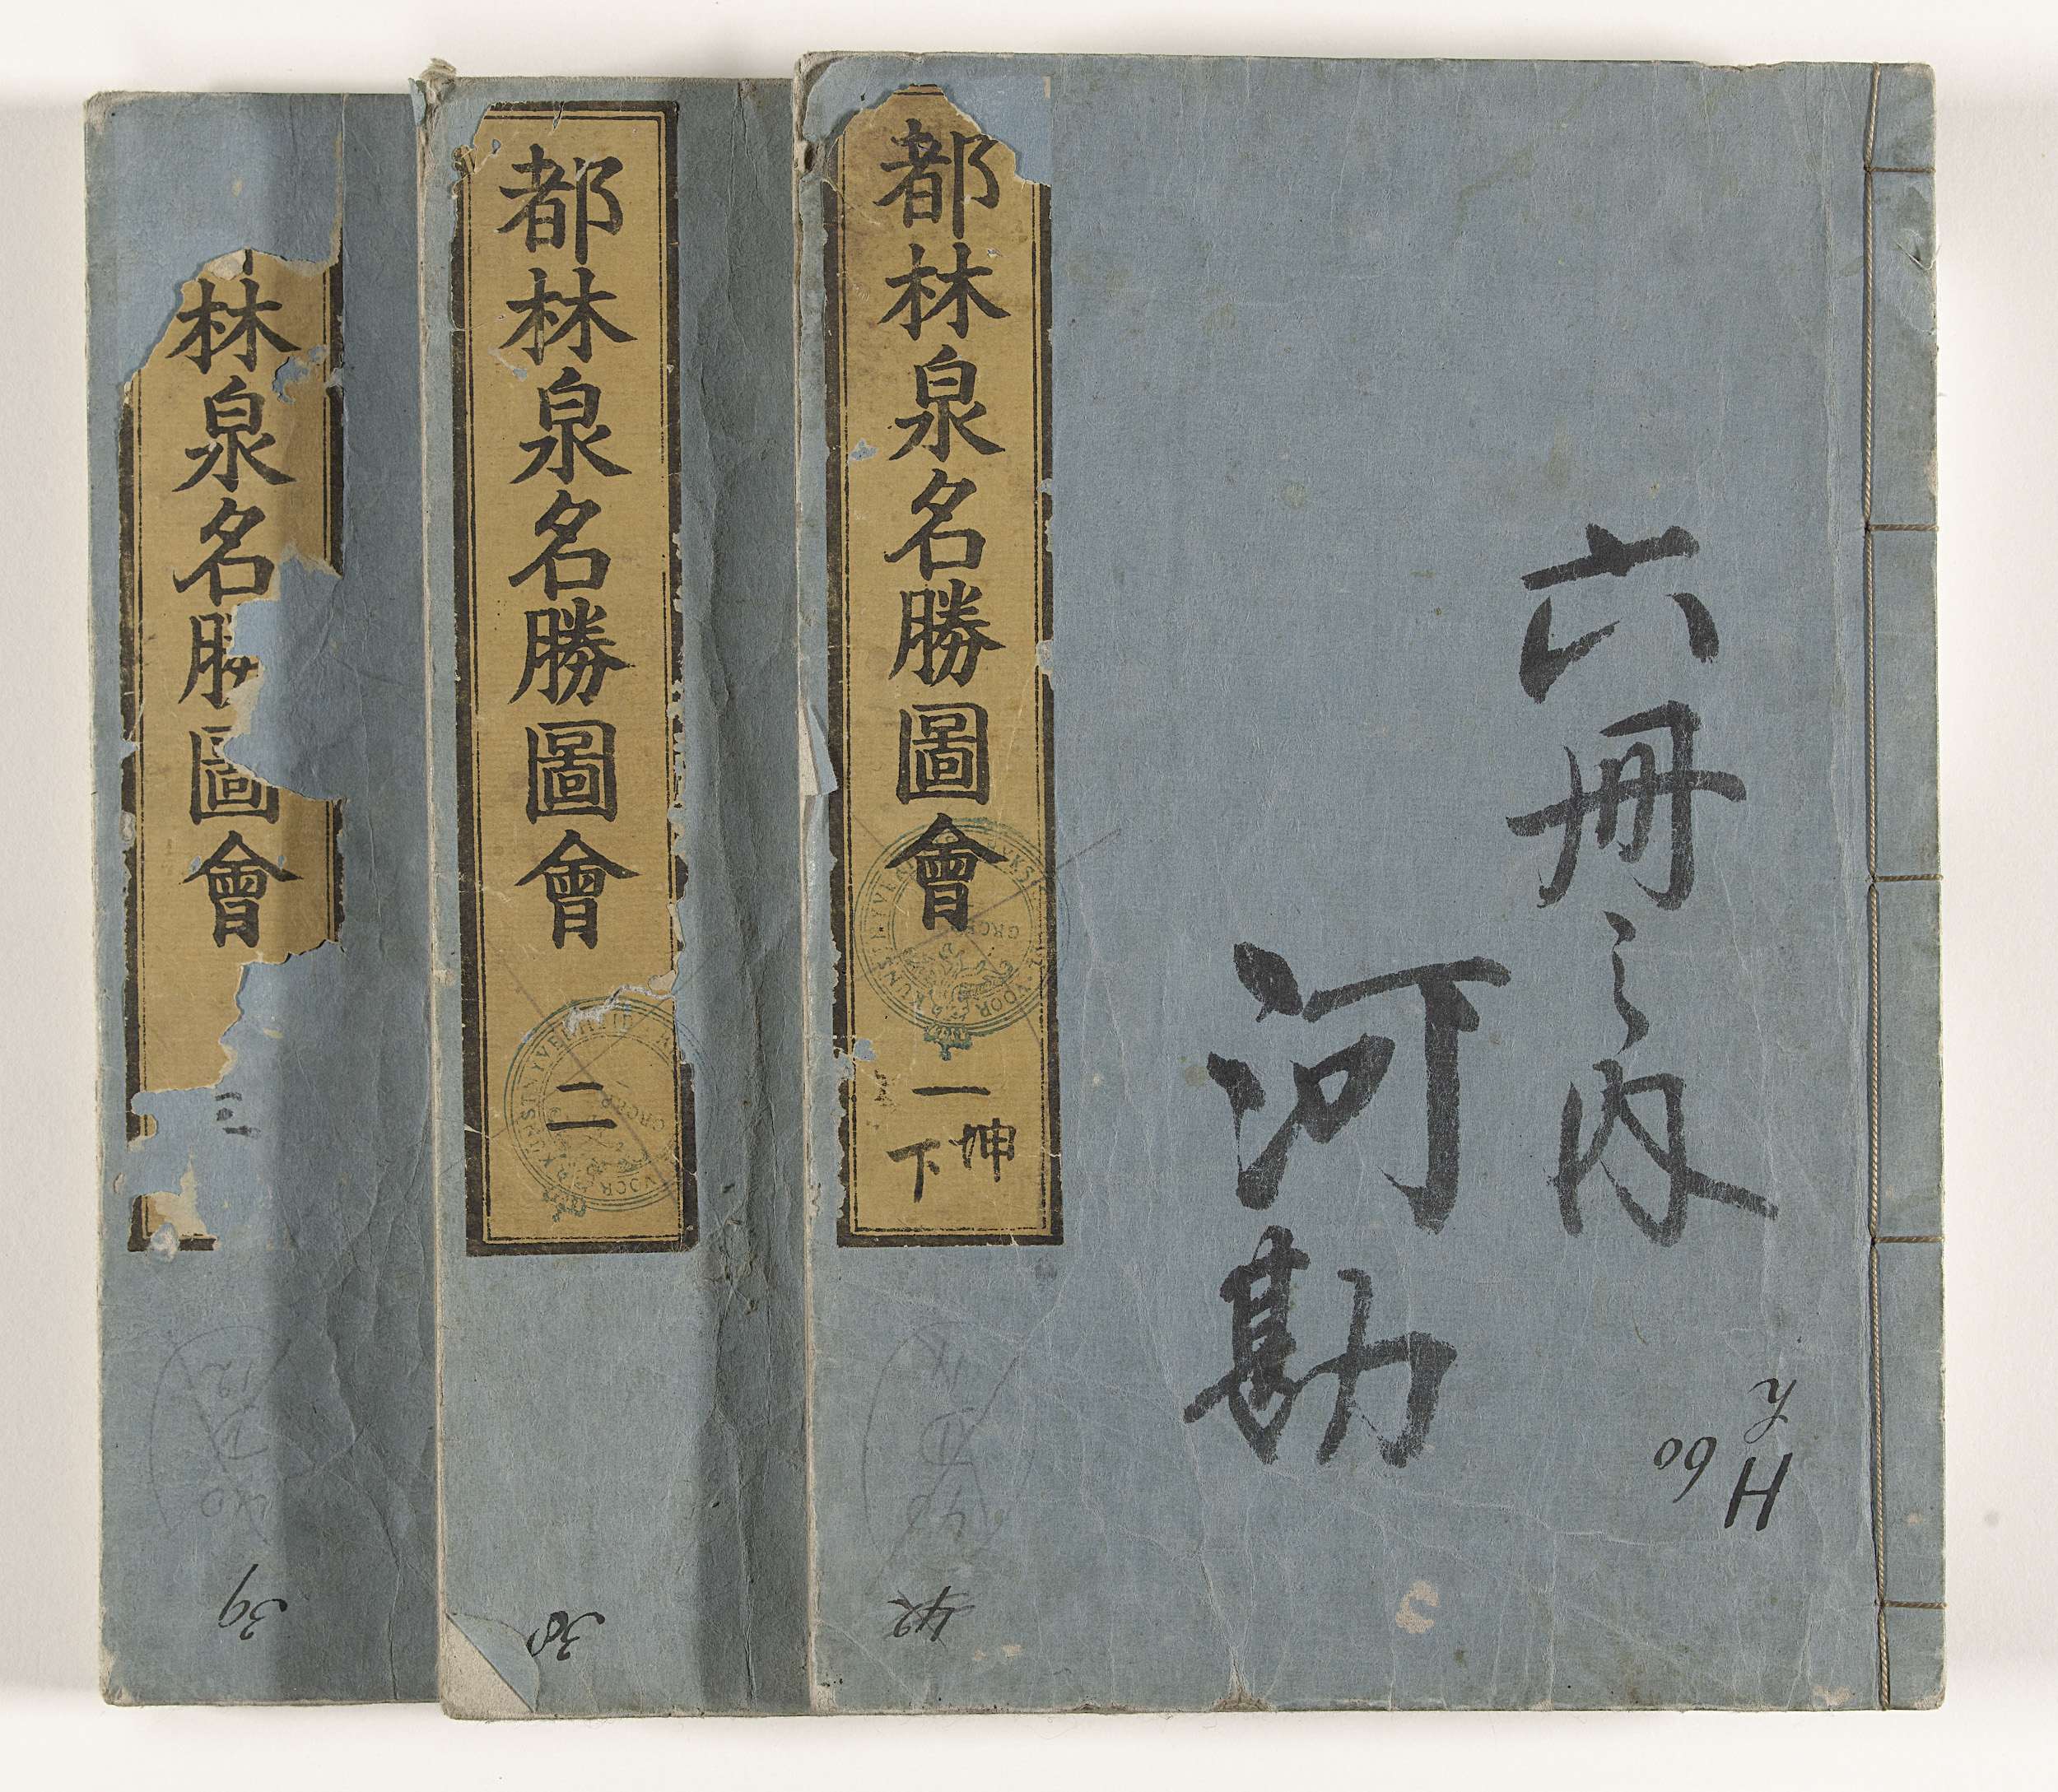 六冊之内
河勘
都林泉名勝圖會
一
坤
下
都林泉名勝圖會
二
林泉名勝圖會
三
h
H
60
42
38
39